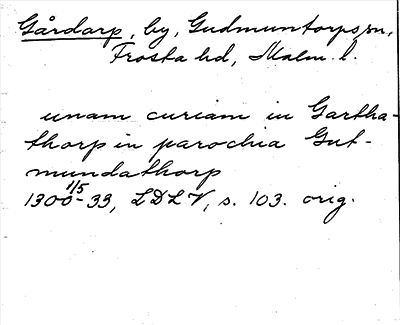 Gårdarp, by, Gudmuntorps sn,
Frosta hd, Malm. l.
unam curiam in Gartha-
thorp in parochia Gut-
mundathorp
1300 1/5 -33, LDLV, s. 103. orig.